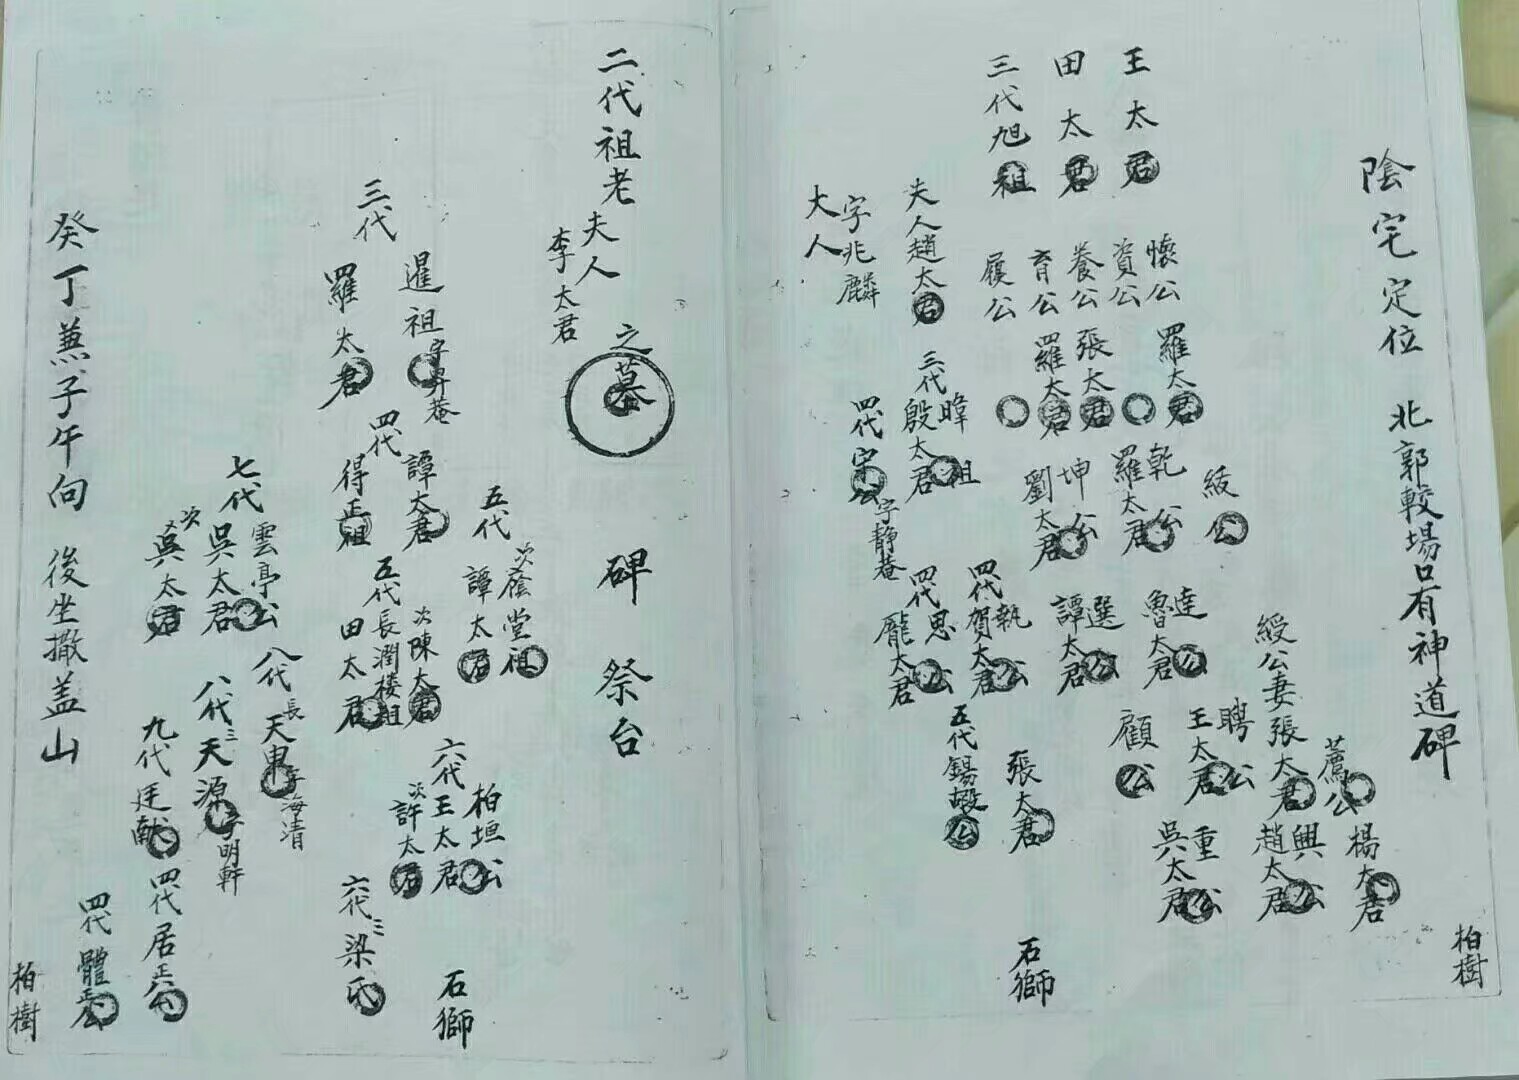 陰宅定位 北郭較場口有神道碑
柏樹
王太君
田太君
三代旭祖
懷公
資公
養公
育公
履公
羅太君
張太君
羅太君
夫人趙太君
字兆麟
大人
綬公
乾公
羅太君
坤公
劉太君
三代暐祖
殷太君
四代守公字靜菴
達公
魯太君
選公
譚太君
四代執公
賀太君
四代思公
龐太君
綬公妻張太君
薦公
楊太君
興公
趙太君
聘公
王太君
重公
吳太君
顧公
張太君
五代錫嘏公
石獅
二代祖老夫人李太君之墓
碑 祭台
三代暹祖字昇菴
羅太君
四代得正祖
譚太君
五代次蔭堂祖
譚太君
次陳太君
五代長潤樓祖
田太君
六代柏垣公
王太君
次許太君
六代三梁氏
石獅
七代雲亭公
吳太君
次吳太君
八代長天東字海清
八代三天源字明軒
九代廷猷公
四代居正公
四代體正公
癸丁兼子午向 後坐撒盖山
柏樹